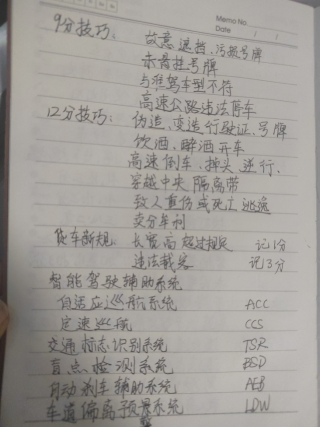 Memo No.
Date / /
9分技巧: 故意遮挡、污损号牌
未悬挂号牌
与准驾车型不符
高速公路违法停车
12分技巧: 伪造、变造行驶证、号牌
饮酒、醉酒开车
高速倒车、掉头、逆行、
穿越中央隔离带
致人重伤或死亡逃逸
卖分牟利
货车新规: 长宽高超过规定 记1分
违法载客 记3分
智能驾驶辅助系统
自适应巡航系统 ACC
定速巡航 CCS
交通标志识别系统 TSR
盲点检测系统 BSD
自动刹车辅助系统 AEB
车道偏离预警系统 LDW